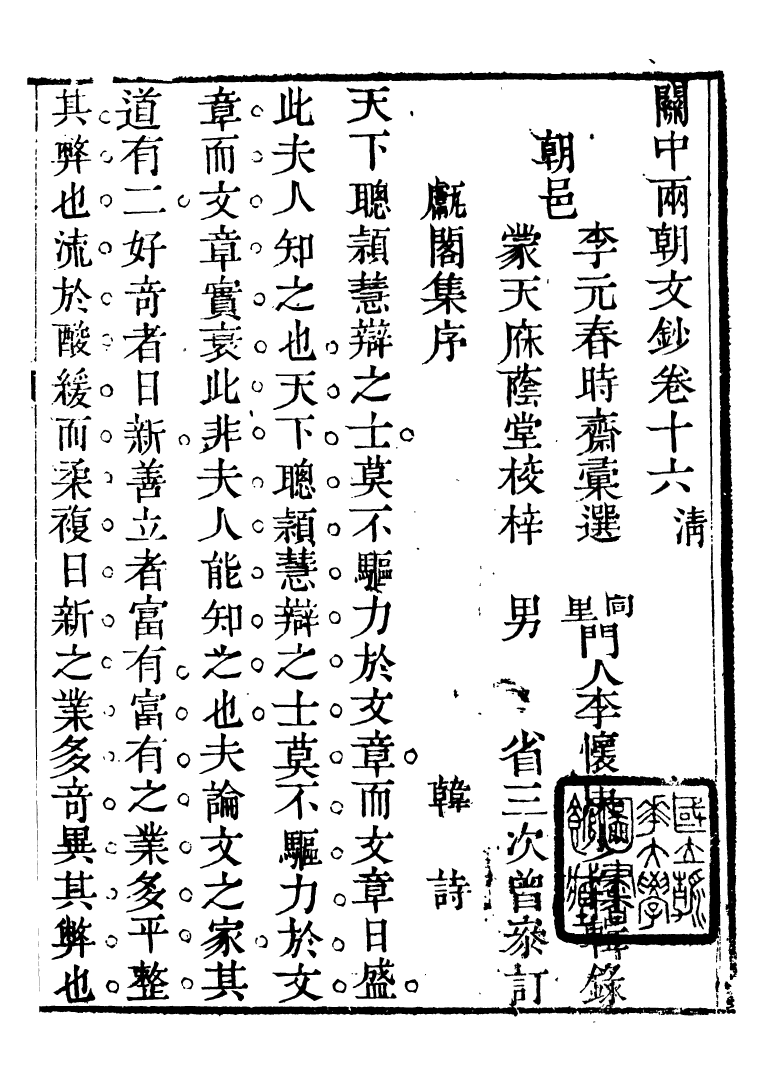 關中兩朝文鈔卷十六 清
朝邑
李元春時齋彙選 同里門人李懷 輯錄
蒙天庥蔭堂校梓 男 省三次曾叅訂
甗閣集序 韓 詩
天下聰頴慧辯之士莫不驅力於文章而文章日盛
此夫人知之也天下聰頴慧辯之士莫不驅力於文
章而文章實衰此非夫人能知之也夫論文之家其
道有二好竒者日新善立者富有富有之業多平整
其弊也流於酸緩而柔複日新之業多竒異其弊也
國立清
華大學
圖書
館藏